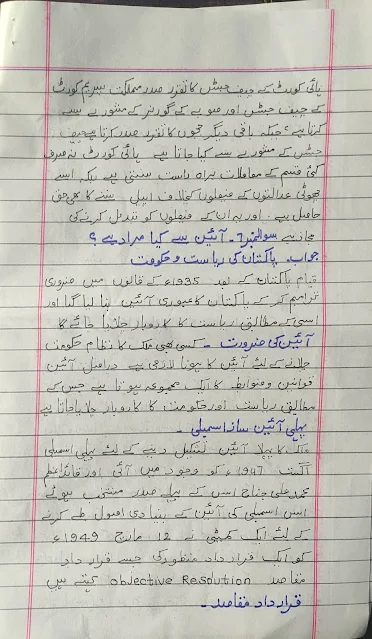 ہائی کورٹ کے چیف جسٹس کا تقرر صدر مملکت سپریم کورٹ
کے چیف جسٹس اور صوبے کے گورنر کے مشورے سے
کرتا ہے جبکہ باقی دیگر ججوں کا تقرر صدر کرتا ہے چیف
جسٹس کے مشورے سے کیا جاتا ہے ہائی کورٹ نہ صرف
کئی قسم کے معاملات براہ راست سنتی ہے بلکہ اسے
چھوٹی عدالتوں کے فیصلوں کیخلاف اپیل سننے کا بھی حق
حاصل ہے۔ اور یہ ان کے فیصلوں کو تبدیل کرنے کی
مجاز ہے سوالنمبر 7۔ آئین سے کیا مراد ہے؟
جواب۔ پاکستان کی ریاست و حکومت
قیام پاکستان کے بعد 1935ء کے قانون میں ضروری
ترامیم کر کے پاکستان کا عبوری آئین بنا لیا گیا اور
اسی کے مطابق ریاست کا کاروبار چلایا جانے لگا
آئین کی ضرورت ۔ کسی بھی ملک کا نظام حکومت
چلانے کے لئے آئین کا ہونا لازمی ہے دراصل آئین
قوانین و ضوابط کا ایک مجموعہ ہوتا ہے جس کے
مطابق ریاست اور حکومت کا کاروبار چلایا جاتا ہے
پہلی آئین ساز اسمبلی۔
ملک کا پہلا آئین تشکیل دینے کے لئے پہلی اسمبلی
اگست 1947ء کو وجود میں آئی اور قائداعظم
محمد علی جناح اس کے پہلے صدر منتخب ہوئے
اس اسمبلی کی آئین کے بنیادی اصول طے کرنے
کے لئے ایک کمیٹی نے 12 مارچ 1949ء
کو ایک قرار داد منظور کی جسے قرار داد
مقاصد objective Resolution کہتے ہیں
قرار داد مقاصد۔